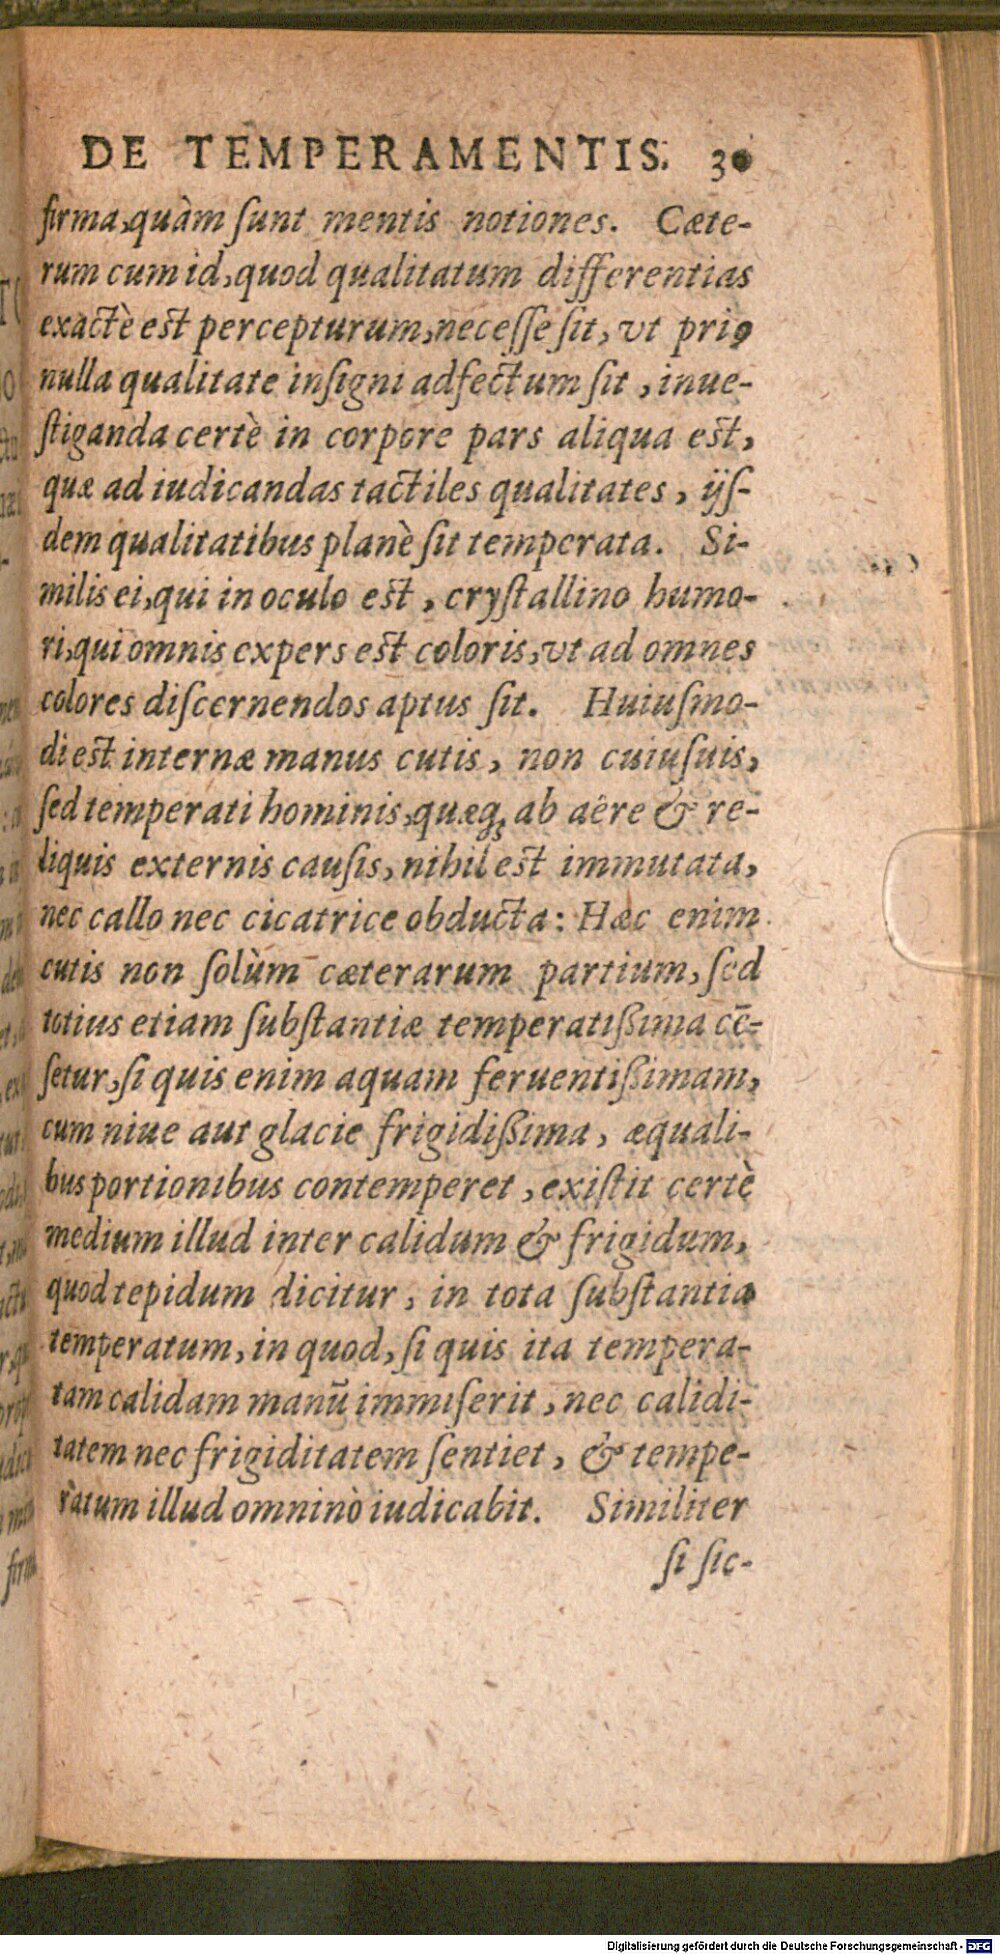 DE TEMPERAMENTIS. 30
firma, quàm ſunt mentis notiones. Cæte-
rum cum id, quod qualitatum differentias
exactè est percepturum, neceſſe ſit, vt prius
nulla qualitate inſigni adfectum ſit, inue-
ſtiganda certè in corpore pars aliqua est,
quæ ad iudicandas tactiles qualitates, ijſ-
dem qualitatibus planè ſit temperata. Si-
milis ei, qui in oculo est, cryſtallino humo-
ri, qui omnis expers est coloris, vt ad omnes
colores diſcernendos aptus ſit. Huiuſmo-
di est internæ manus cutis, non cuiuſuis,
ſed temperati hominis, quæq; ab aëre & re-
liquis externis cauſis, nihil est immutata,
nec callo nec cicatrice obducta: Hæc enim
cutis non ſolùm cæterarum partium, ſed
totius etiam ſubſtantiæ temperatißima cē-
ſetur, ſi quis enim aquam feruentißimam,
cum niue aut glacie frigidißima, æquali-
bus portionibus contemperet, exiſtit certè
medium illud inter calidum & frigidum,
quod tepidum dicitur, in tota ſubſtantia
temperatum, in quod, ſi quis ita tempera-
tam calidam manū immiſerit, nec calidi-
tatem nec frigiditatem ſentiet, & tempe-
ratum illud omninò iudicabit. Similiter
ſi ſic-
Digitalisierung gefördert durch die Deutsche Forschungsgemeinschaft - DFG